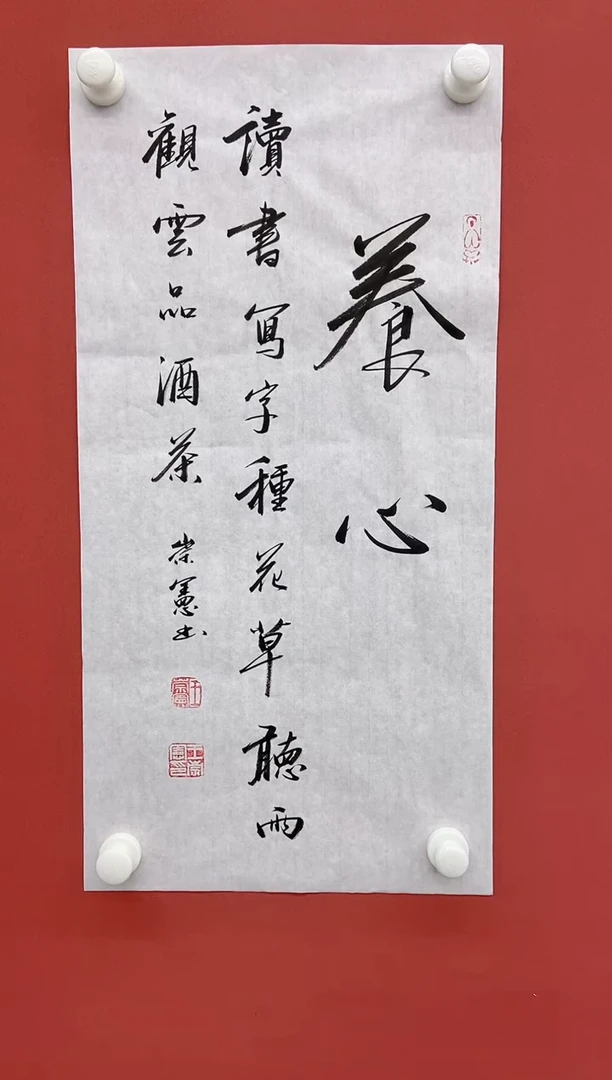 養心
讀書寫字種花草聽雨
觀雲品酒茶
崇憲書